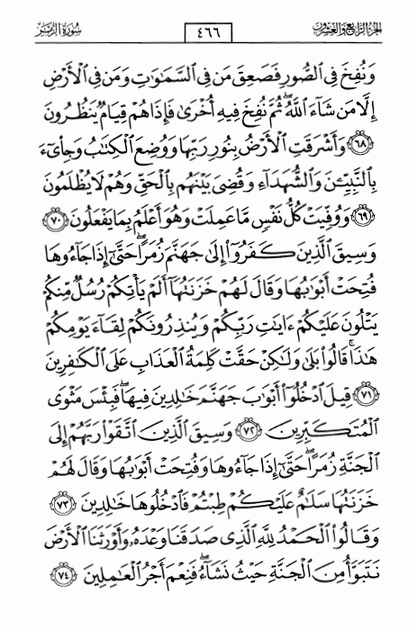 الجزء الرابع والعشرون ٤٦٦ سورة الزمر
وَنُفِخَ فِي ٱلصُّورِ فَصَعِقَ مَن فِي ٱلسَّمَٰوَٰتِ وَمَن فِي ٱلْأَرْضِ
إِلَّا مَن شَآءَ ٱللَّهُۖ ثُمَّ نُفِخَ فِيهِ أُخْرَىٰ فَإِذَا هُمْ قِيَامٌ يَنظُرُونَ
٦٨ وَأَشْرَقَتِ ٱلْأَرْضُ بِنُورِ رَبِّهَا وَوُضِعَ ٱلْكِتَٰبُ وَجِا۟ىٓءَ
بِٱلنَّبِيِّـۧنَ وَٱلشُّهَدَآءِ وَقُضِيَ بَيْنَهُم بِٱلْحَقِّ وَهُمْ لَا يُظْلَمُونَ
٦٩ وَوُفِّيَتْ كُلُّ نَفْسٍ مَّا عَمِلَتْ وَهُوَ أَعْلَمُ بِمَا يَفْعَلُونَ ٧٠
وَسِيقَ ٱلَّذِينَ كَفَرُوٓا۟ إِلَىٰ جَهَنَّمَ زُمَرًاۖ حَتَّىٰٓ إِذَا جَآءُوهَا
فُتِحَتْ أَبْوَٰبُهَا وَقَالَ لَهُمْ خَزَنَتُهَآ أَلَمْ يَأْتِكُمْ رُسُلٌ مِّنكُمْ
يَتْلُونَ عَلَيْكُمْ ءَايَٰتِ رَبِّكُمْ وَيُنذِرُونَكُمْ لِقَآءَ يَوْمِكُمْ
هَٰذَاۚ قَالُوا۟ بَلَىٰ وَلَٰكِنْ حَقَّتْ كَلِمَةُ ٱلْعَذَابِ عَلَى ٱلْكَٰفِرِينَ
٧١ قِيلَ ٱدْخُلُوٓا۟ أَبْوَٰبَ جَهَنَّمَ خَٰلِدِينَ فِيهَاۖ فَبِئْسَ مَثْوَى
ٱلْمُتَكَبِّرِينَ ٧٢ وَسِيقَ ٱلَّذِينَ ٱتَّقَوْا۟ رَبَّهُمْ إِلَى
ٱلْجَنَّةِ زُمَرًاۖ حَتَّىٰٓ إِذَا جَآءُوهَا وَفُتِحَتْ أَبْوَٰبُهَا وَقَالَ لَهُمْ
خَزَنَتُهَا سَلَٰمٌ عَلَيْكُمْ طِبْتُمْ فَٱدْخُلُوهَا خَٰلِدِينَ ٧٣
وَقَالُوا۟ ٱلْحَمْدُ لِلَّهِ ٱلَّذِي صَدَقَنَا وَعْدَهُۥ وَأَوْرَثَنَا ٱلْأَرْضَ
نَتَبَوَّأُ مِنَ ٱلْجَنَّةِ حَيْثُ نَشَآءُۖ فَنِعْمَ أَجْرُ ٱلْعَٰمِلِينَ ٧٤